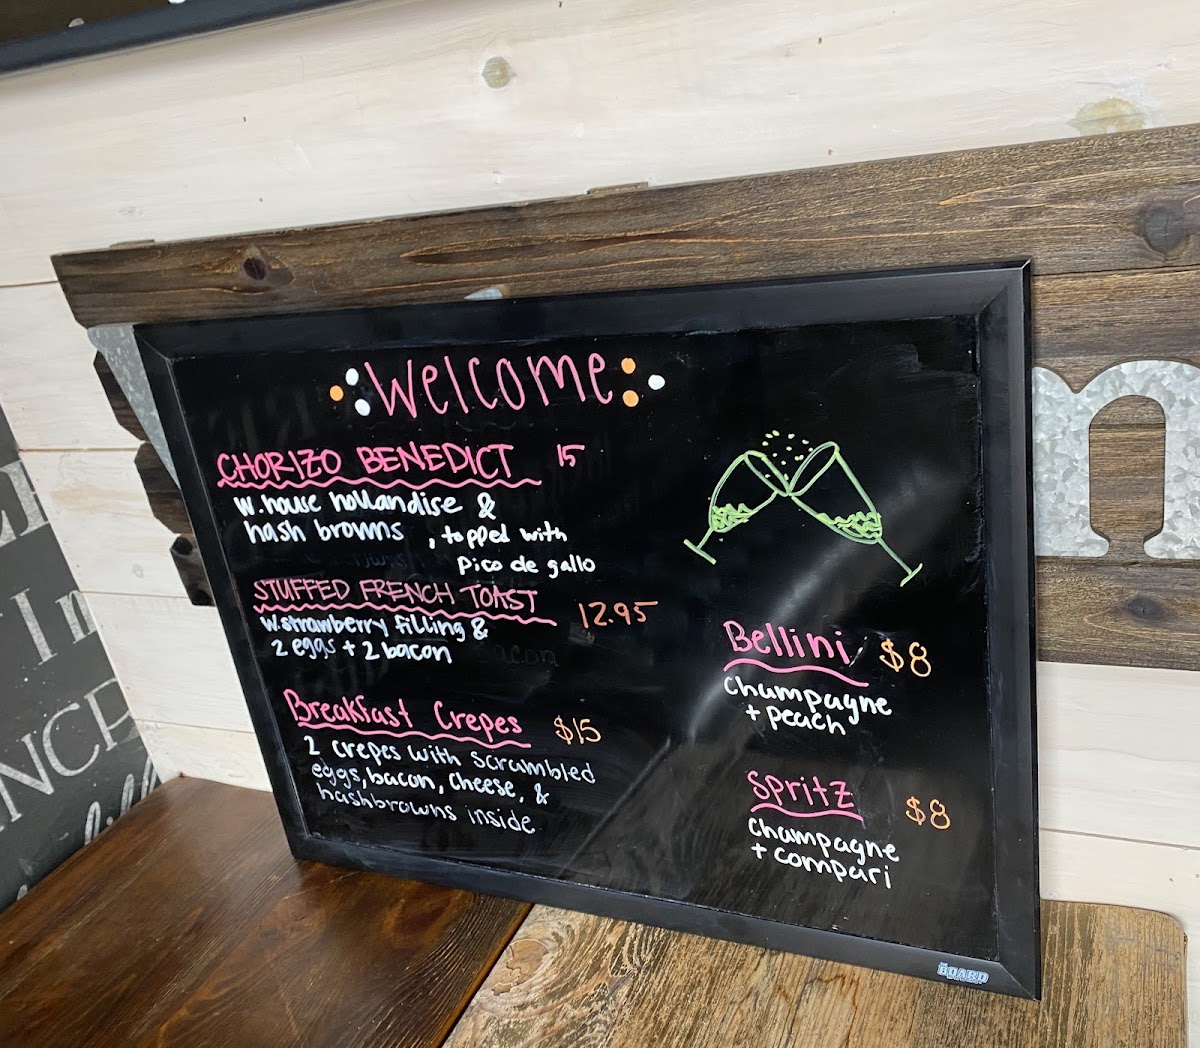 Welcome
CHORIZO BENEDICT 15
w. house hollandise &
hash browns , topped with
pico de gallo
STUFFED FRENCH TOAST 12.95
w. strawberry filling &
2 eggs + 2 bacon
Breakfast Crepes $15
2 crepes with scrambled
eggs, bacon, cheese, &
hashbrowns inside
Bellini $8
Champagne
+ peach
Spritz $8
Champagne
+ compari
THE BOARD